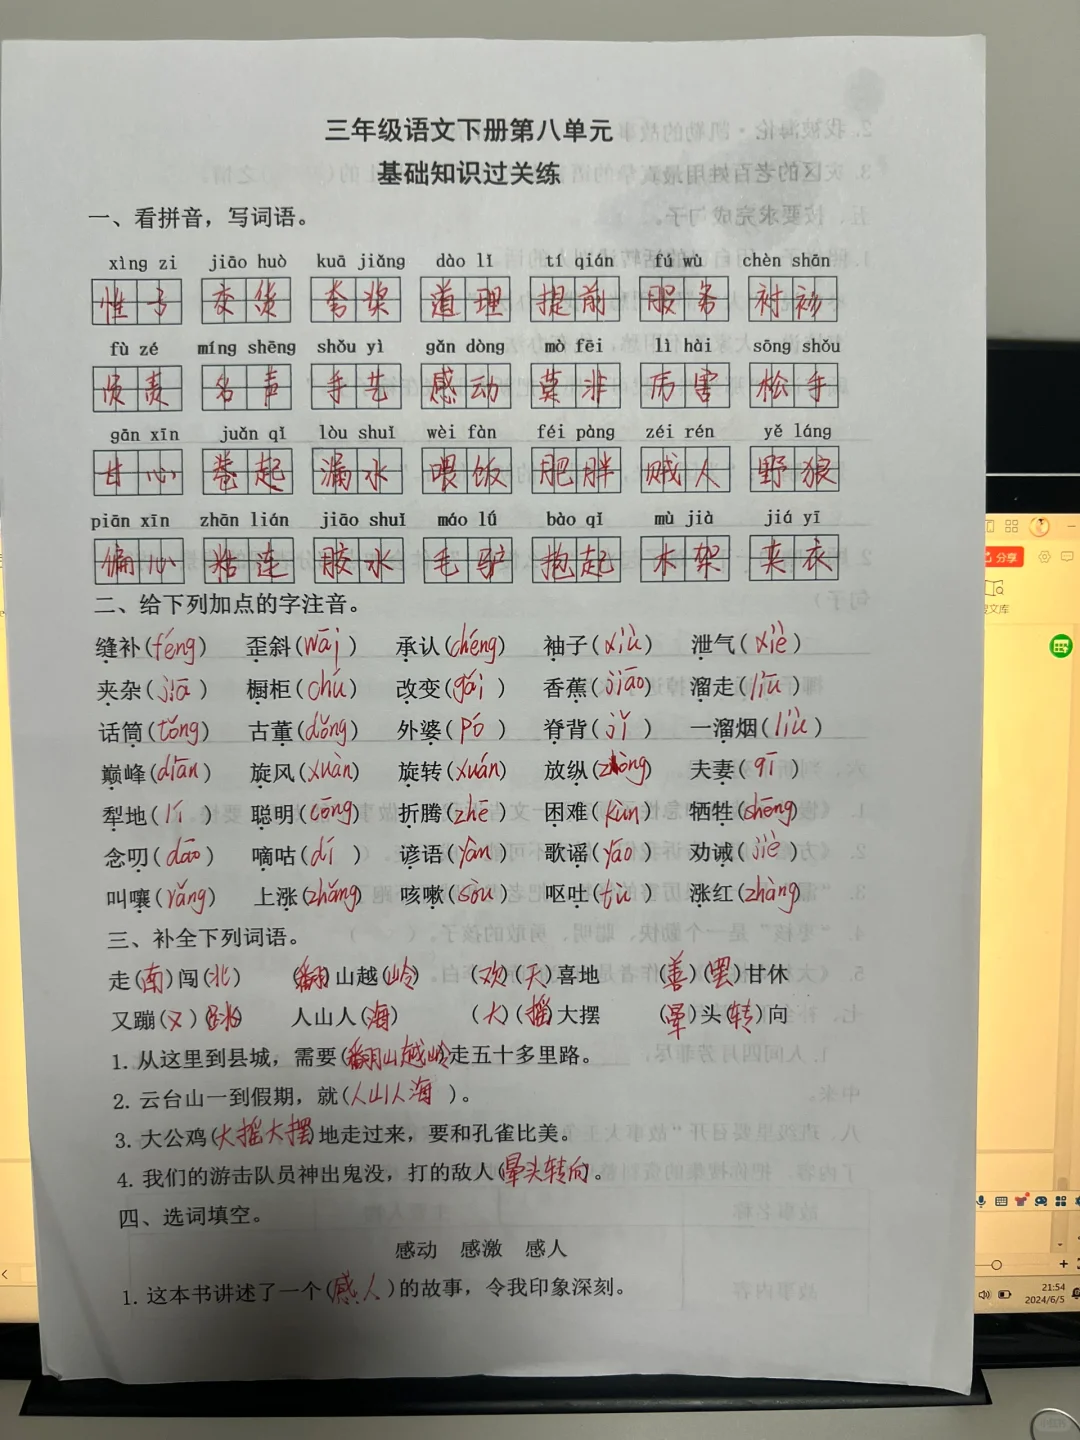 三年级语文下册第八单元
基础知识过关练
一、看拼音，写词语。
xìng zi jiāo huò kuā jiǎng dào lǐ tí qián fú wù chèn shān
性子 交货 夸奖 道理 提前 服务 衬衫
fù zé míng shēng shǒu yì gǎn dòng mò fēi lì hài sōng shǒu
负责 名声 手艺 感动 莫非 厉害 松手
gān xīn juǎn qǐ lòu shuǐ wèi fàn féi pàng zéi rén yě láng
甘心 卷起 漏水 喂饭 肥胖 贼人 野狼
piān xīn zhān lián jiāo shuǐ máo lǘ bào qǐ mù jià jiá yī
偏心 粘连 胶水 毛驴 抱起 木架 夹衣
二、给下列加点的字注音。
缝补(féng) 歪斜(wāi) 承认(chéng) 袖子(xiù) 泄气(xiè)
夹杂(jiā) 橱柜(chú) 改变(gǎi) 香蕉(jiāo) 溜走(liū)
话筒(tǒng) 古董(dǒng) 外婆(pó) 脊背(jǐ) 一溜烟(liù)
巅峰(diān) 旋风(xuàn) 旋转(xuán) 放纵(zòng) 夫妻(qī)
犁地(lí) 聪明(cōng) 折腾(zhē) 困难(kùn) 牺牲(shēng)
念叨(dāo) 嘀咕(dí) 谚语(yàn) 歌谣(yáo) 劝诫(jiè)
叫嚷(rǎng) 上涨(zhǎng) 咳嗽(sòu) 呕吐(tù) 涨红(zhàng)
三、补全下列词语。
走(南)闯(北) (翻)山越(岭) (欢)(天)喜地 (善)(罢)甘休
又蹦(又)(跳) 人山人(海) (大)(摇)大摆 (晕)头(转)向
1. 从这里到县城，需要(翻山越岭)走五十多里路。
2. 云台山一到假期，就(人山人海)。
3. 大公鸡(大摇大摆)地走过来，要和孔雀比美。
4. 我们的游击队员神出鬼没，打的敌人(晕头转向)。
四、选词填空。
感动 感激 感人
1. 这本书讲述了一个(感人)的故事，令我印象深刻。
分享
文库
21:54
2024/6/5